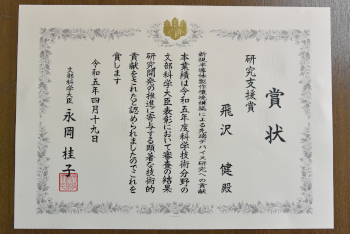 賞状
研究支援賞
飛沢 健 殿
新規半導体製作環境構築による先端デバイス研究への貢献
本業績は令和五年度科学技術分野の
文部科学大臣表彰において審査の結果
研究開発の推進に寄与する顕著な技術的
貢献をされたと認められましたのでこれを
賞します
令和五年四月十九日
文部科学大臣 永岡桂子